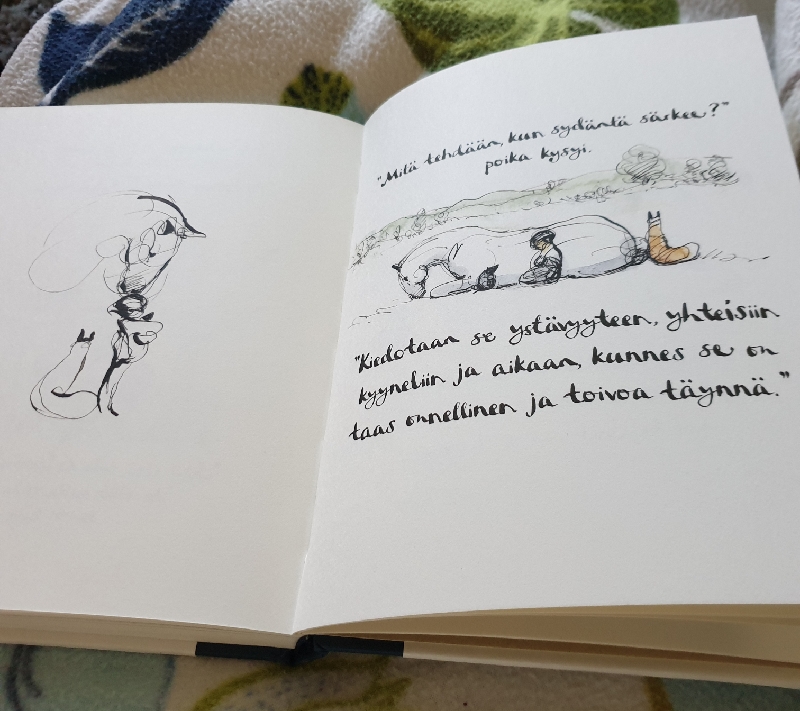 "Mitä tehdään, kun sydäntä särkee?"
poika kysyi.
"Kiedotaan se ystävyyteen, yhteisiin
kyyneliin ja aikaan, kunnes se on
taas onnellinen ja toivoa täynnä."